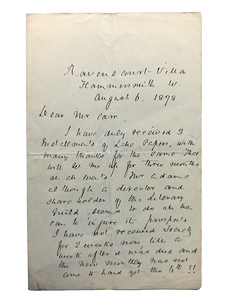 Ravenscourt Villa
Hammersmith W
August 6. 1898
Dear Mr Carr
I have duly received 3
of Echo Papers, with
many thanks for the same that
will me up for three months
at all events. Mr Adams
although a director and
share holder of the Literary
Guild seems to do all he
can to injure its prospects
I have not received Society
for 2 weeks now till a
week after it was due and
the new has not
come to hand yet the 6th!!